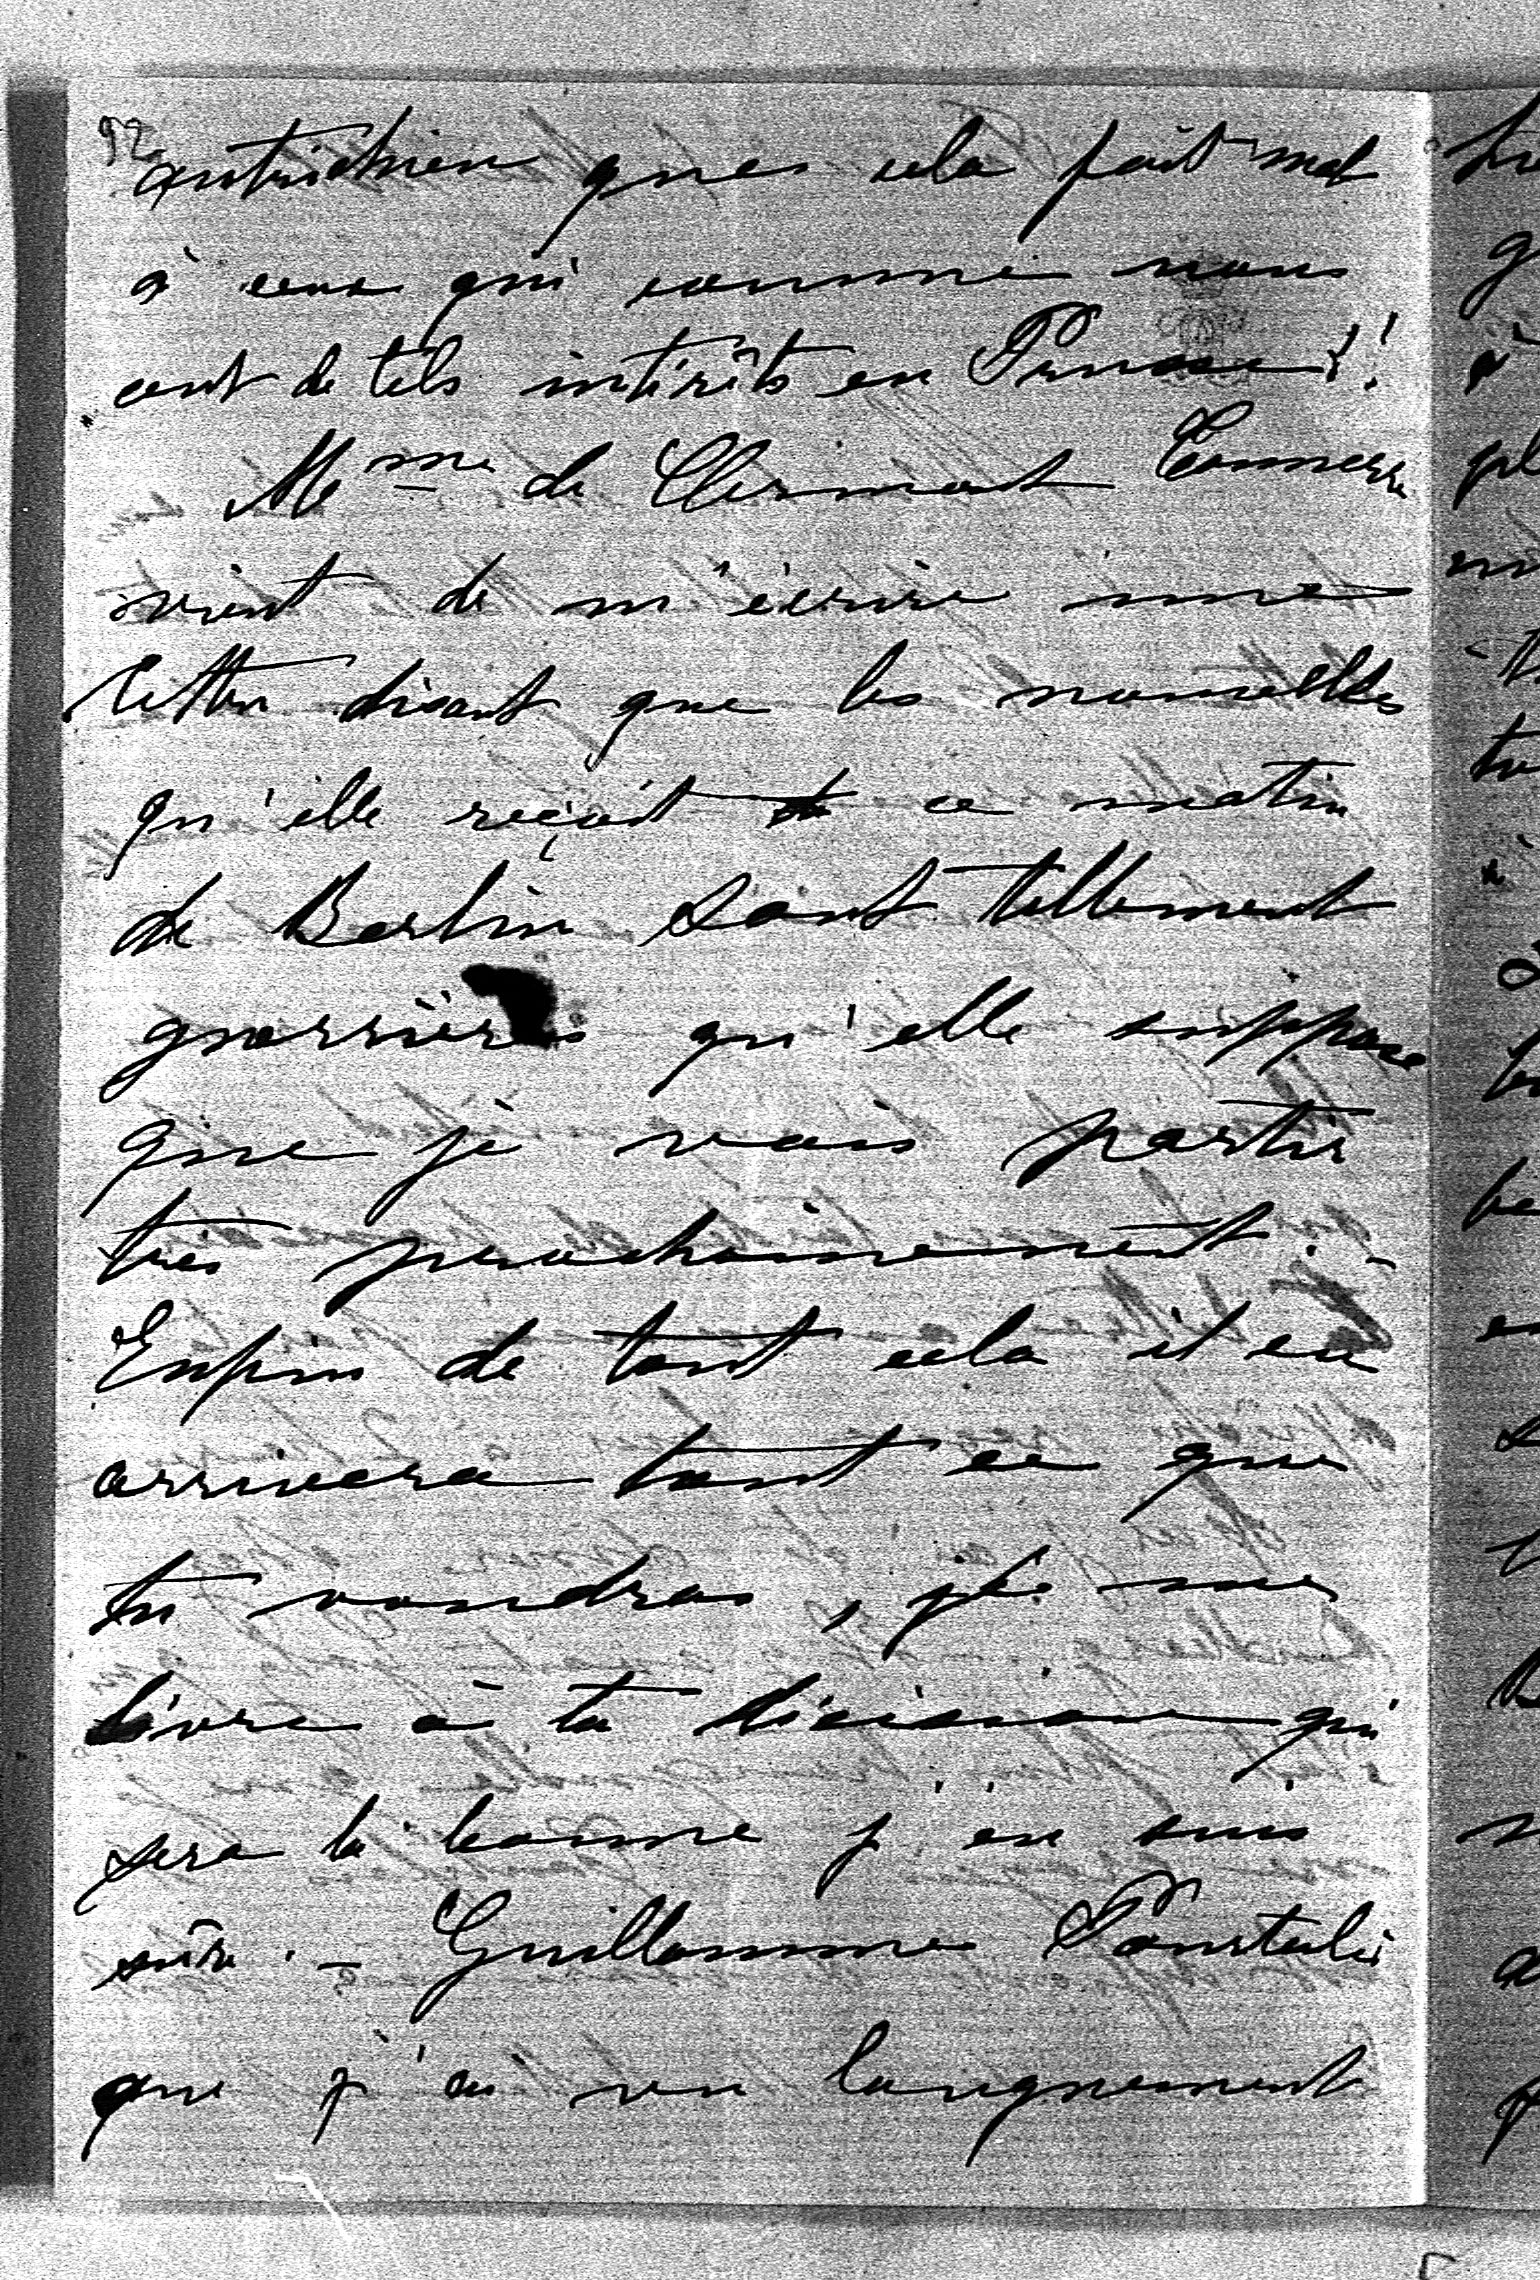 92
autrichien que cela fait mal
à ceux qui comme nous
ont de tels intérêts en Prusse!!
Mme de Clermont Tonnerre
vient de m'écrire une
lettre disant que les nouvelles
qu'elle reçoit ce matin
de Berlin sont tellement
guerrières qu'elle suppose
que je vais partir
très prochainement. -
Enfin de tout cela il en
arrivera tout ce que
tu voudras, je me
livre à ta décision qui
sera la bonne j'en suis
sûre. - Guillaume Pourtalès
que j'ai vu longuement